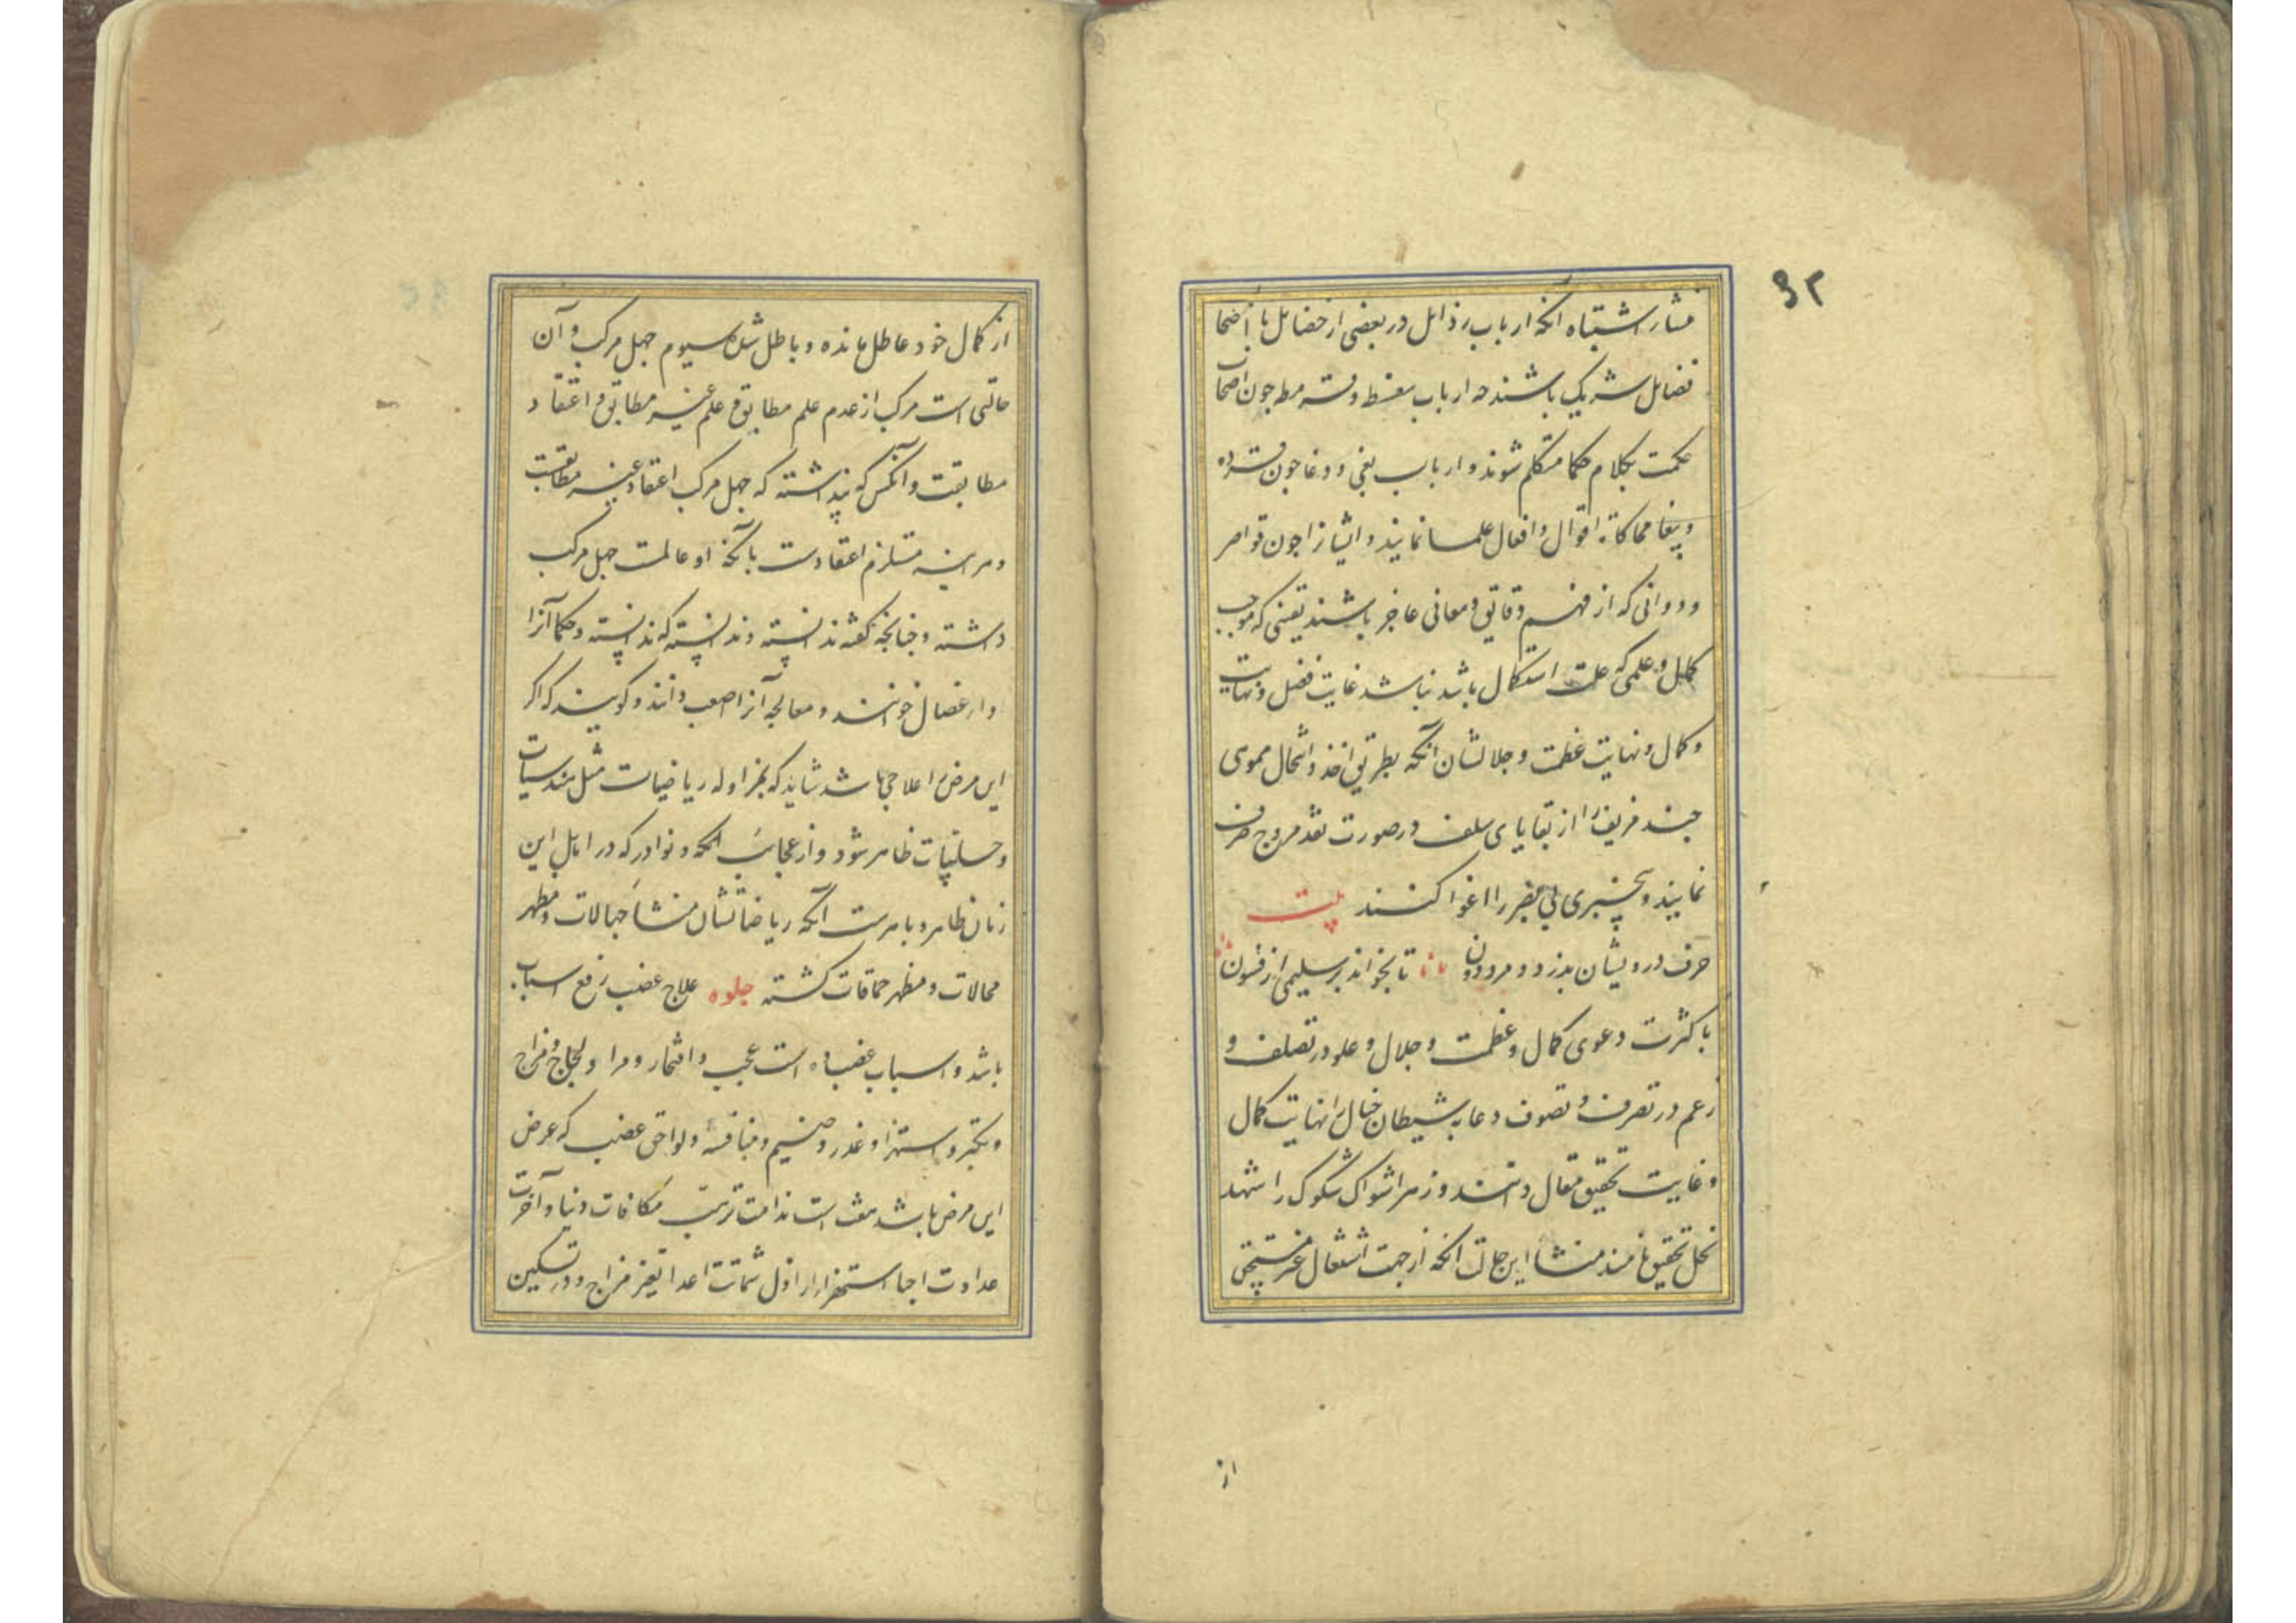 ۹۲
منشاء اشتباه آنکه ارباب رذایل در بعضی از خصایل با اصحاب
فضایل شریک باشند چه ارباب سفسطه چون اصحاب
حکمت بکلام حکما متکلم شوند و ارباب بغی و دغا چون قرده
و ببغا محاکات اقوال و افعال علما نمایند و ایشانرا چون قواصر
و دوانی که از فهم دقایق و معانی عاجز باشند یقینی که موجب
کمال و علمی که علت استکمال باشد نباشد غایت فضل و نهایت
و کمال و نهایت عظمت و جلالشان آنکه بطریق اخذ و انتحال مموی
چند مزیف را از بقایای سلف در صورت نقد مروج صرف
نمایند و بیخبری بی بصر را اغوا کنند بیت
حرف درویشان بدزدد مرد دون تا بخواند بر سلیمی زان فسون
با کثرت دعوی کمال و عظمت و جلال و علو در تصلف و
زعم در تصرف و تصوف دعابه شیطان خیال را نهایت کمال
و غایت تحقیق مقال دانند و زهر اشواک شکوک را شهد
نحل تحقیق نامند منشا این حالت آنکه از جهت اشتغال غیر مستحق
از
از کمال خود عاطل مانده و باطل شده سیوم جهل مرکب و آن
حالتی است مرکب از عدم علم مطابق و علم غیر مطابق و اعتقاد
مطابقت و آنکس که پنداشته که جهل مرکب اعتقاد غیر مطابقست
و هر آینه مستلزم اعتقادست بآنکه او عالمست جهل مرکب
داشته و چنانچه گفته ندانسته و ندانسته که ندانسته و حکما آنرا
داء عضال خوانند و معالجه آنرا اصعب دانند و گویند که اگر
این مرض را علاجی باشد شاید که بمزاوله ریاضیات مثل هندسیات
و حسابیات ظاهر شود و از عجایب آنکه و نوادر که در اهالی این
زمان ظاهر و باهرست آنکه ریاضاتشان منشا جهالات و مظهر
محالات و مظهر حماقات گشته جلوه علاج غضب رفع اسباب
باشد و اسباب غضب ده است عجب و افتخار و مرا و لجاج و مزاح
و تکبر و استهزا و غدر و ضیم و منافسه و لواحق غضب که عرض
این مرض باشد هفت است ندامت ترتب مکافات دنیا و آخرت
عداوت احبا استهزاء اراذل شماتت اعدا تغیر مزاج و در تسکین